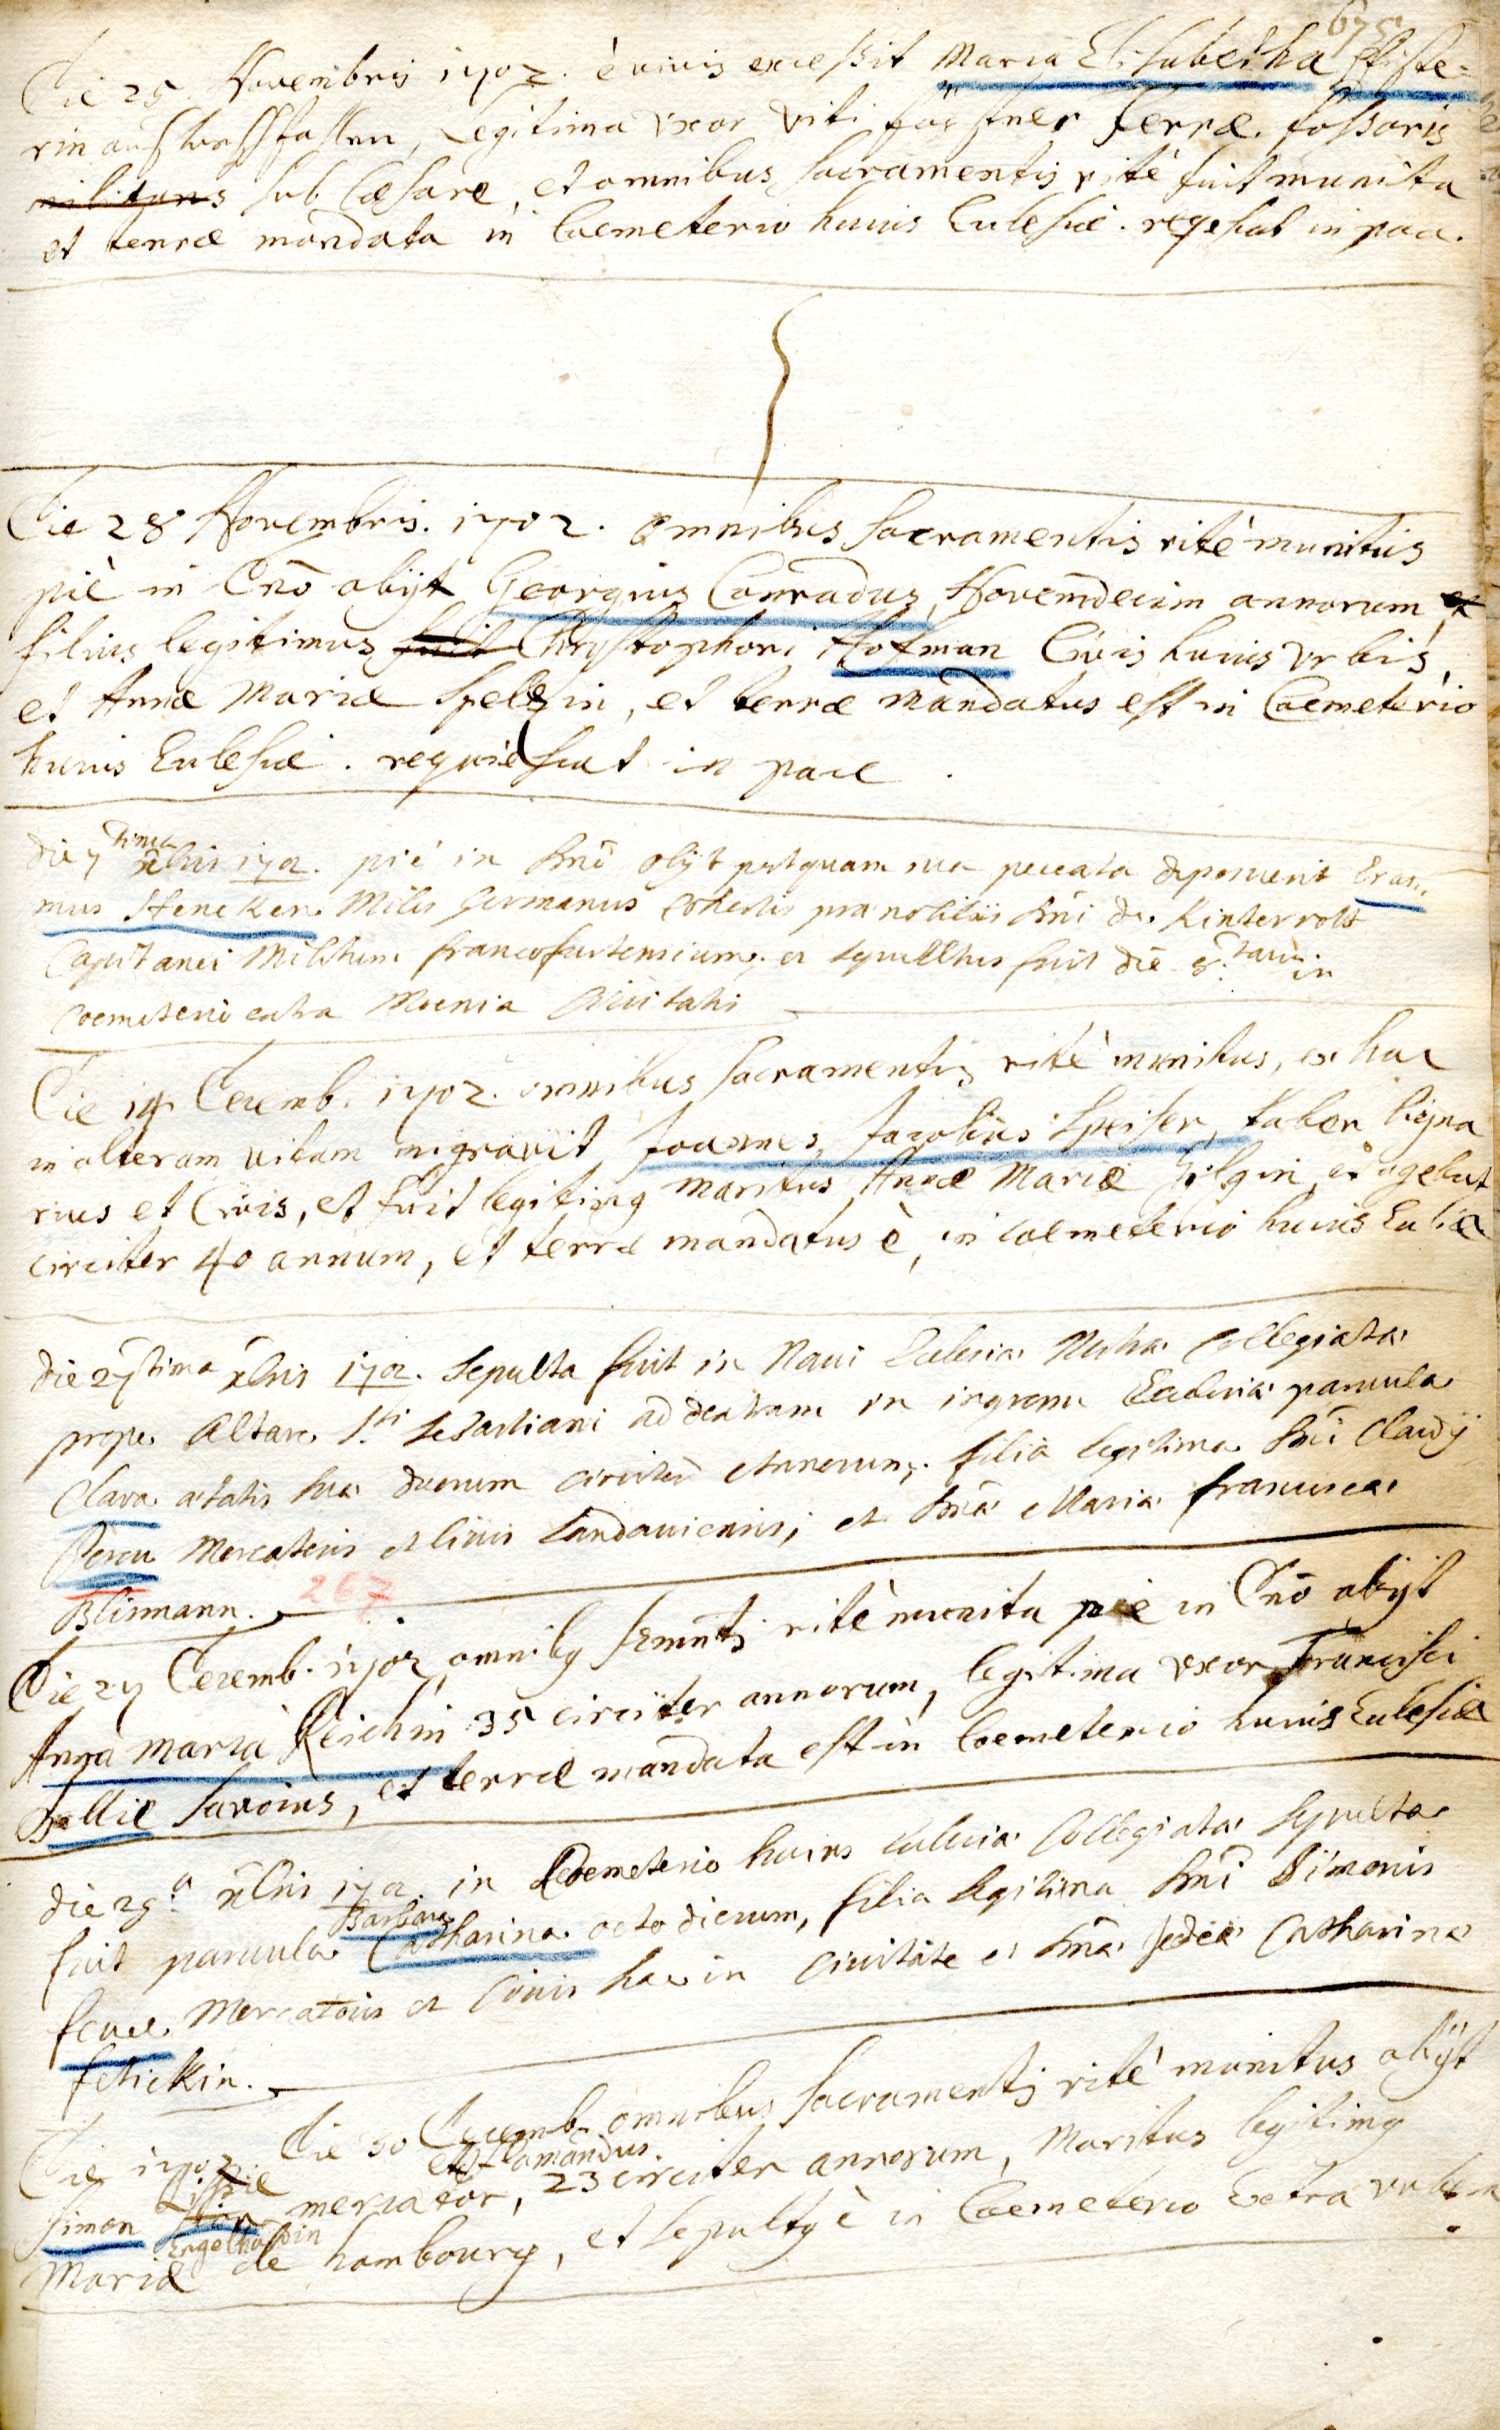 675
Die 25 Novembris 1702. è vivis excessit Maria Elisabetha Pfiste=
rin legitima uxor Viti terræ fossoris
militans sub Cæsare, et omnibus sacramentis ritè fuit munita
et terræ mandata in Coemeterio huius Eclesiæ. reqescat in pace.
Die 28 Novembris. 1702. omnibus sacramentis ritè munitus
piè in Dño obijt Georgius Conradus, Novemdecim annorum et
filius legitimus fuit Christophori Hofman Civis huius urbis,
et Annæ Mariæ in, et terræ mandatus est in Coemeterio
huius Eclesiæ. requiescat in pace.
die 7tima xbris 1702. piè in Dnō obijt postquam sua peccata deposuerit Eras=
mus Hencken Miles Germanus Cohortis prænobilis Dnī de Kinterrott
Capitanei Militum francofurtensium; et sepultus fuit die 8tava in
coemeterio extra Moenia Civitatis
Die 14 Decemb. 1702. omnibus sacramentis ritè munitus, ex hac
in alteram vitam migravit Joannes Jacobus Speiser, faber ligna
rius et Civis, et fuit legitimq maritus Annæ Mariæ Gilgin, et agebat
circiter 40 annum, et terræ mandatus è, in coemeterio huius Eclīæ
die 27tima xbris 1702. sepulta fuit in Navi Ecclesiæ Nostræ Collegiatæ
prope Altare Sti Sebastiani ad dextram in ingressu Ecclesiæ parvula
Clara ætatis suæ duorum circiter Annorum; filia legitima Dnī Claudij
Percu Mercatoris et Civis Landaviensis; et Dnæ Mariæ Franciscæ
Blinmann.
267
Die 27 Decemb. 1702 omnibq Srmntis ritè munita piè in Dño obijt
Anna Maria Reichin 35 circiter annorum, legitima uxor Francisci
Ballie Savoius, et terræ mandata est in Coemeterio huius Eclesiæ
die 29a xbris 1702. in Coemeterio huius Ecclesiæ Collegiatæ sepulta
Barbara
fuit parvula Catharina octo dierum, filia legitima Dnī Simonis
feuce Mercatoris et Civis hac in Civitate et Dnæ Catharinæ
fetickin.
Die 1702. Die 30 Decemb. omnibus sacramentis ritè munitus obijt
Simon mercator, 23 circiter annorum, Maritus legitimq
Engelhardin
Mariæ de hombourg, et sepultq è in Coemeterio Extra urbem